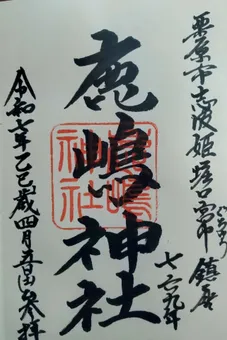 栗原市志波姫堀口 鎮座
鹿嶋神社
鹿嶋
神社
令和七年乙巳歳四月吉日参拝